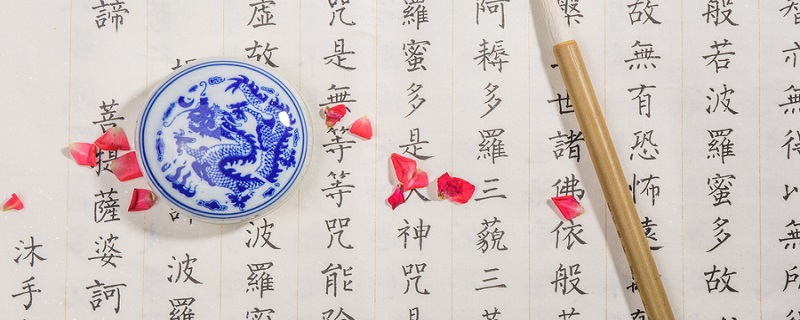 智亦無得以無所
般若波羅蜜多故
故無有恐怖遠
槃世諸佛依般
阿耨多羅三藐三
羅蜜多是大神咒是
咒是無等等咒能除
虛故波羅
波羅
諦菩提薩婆訶
沐手